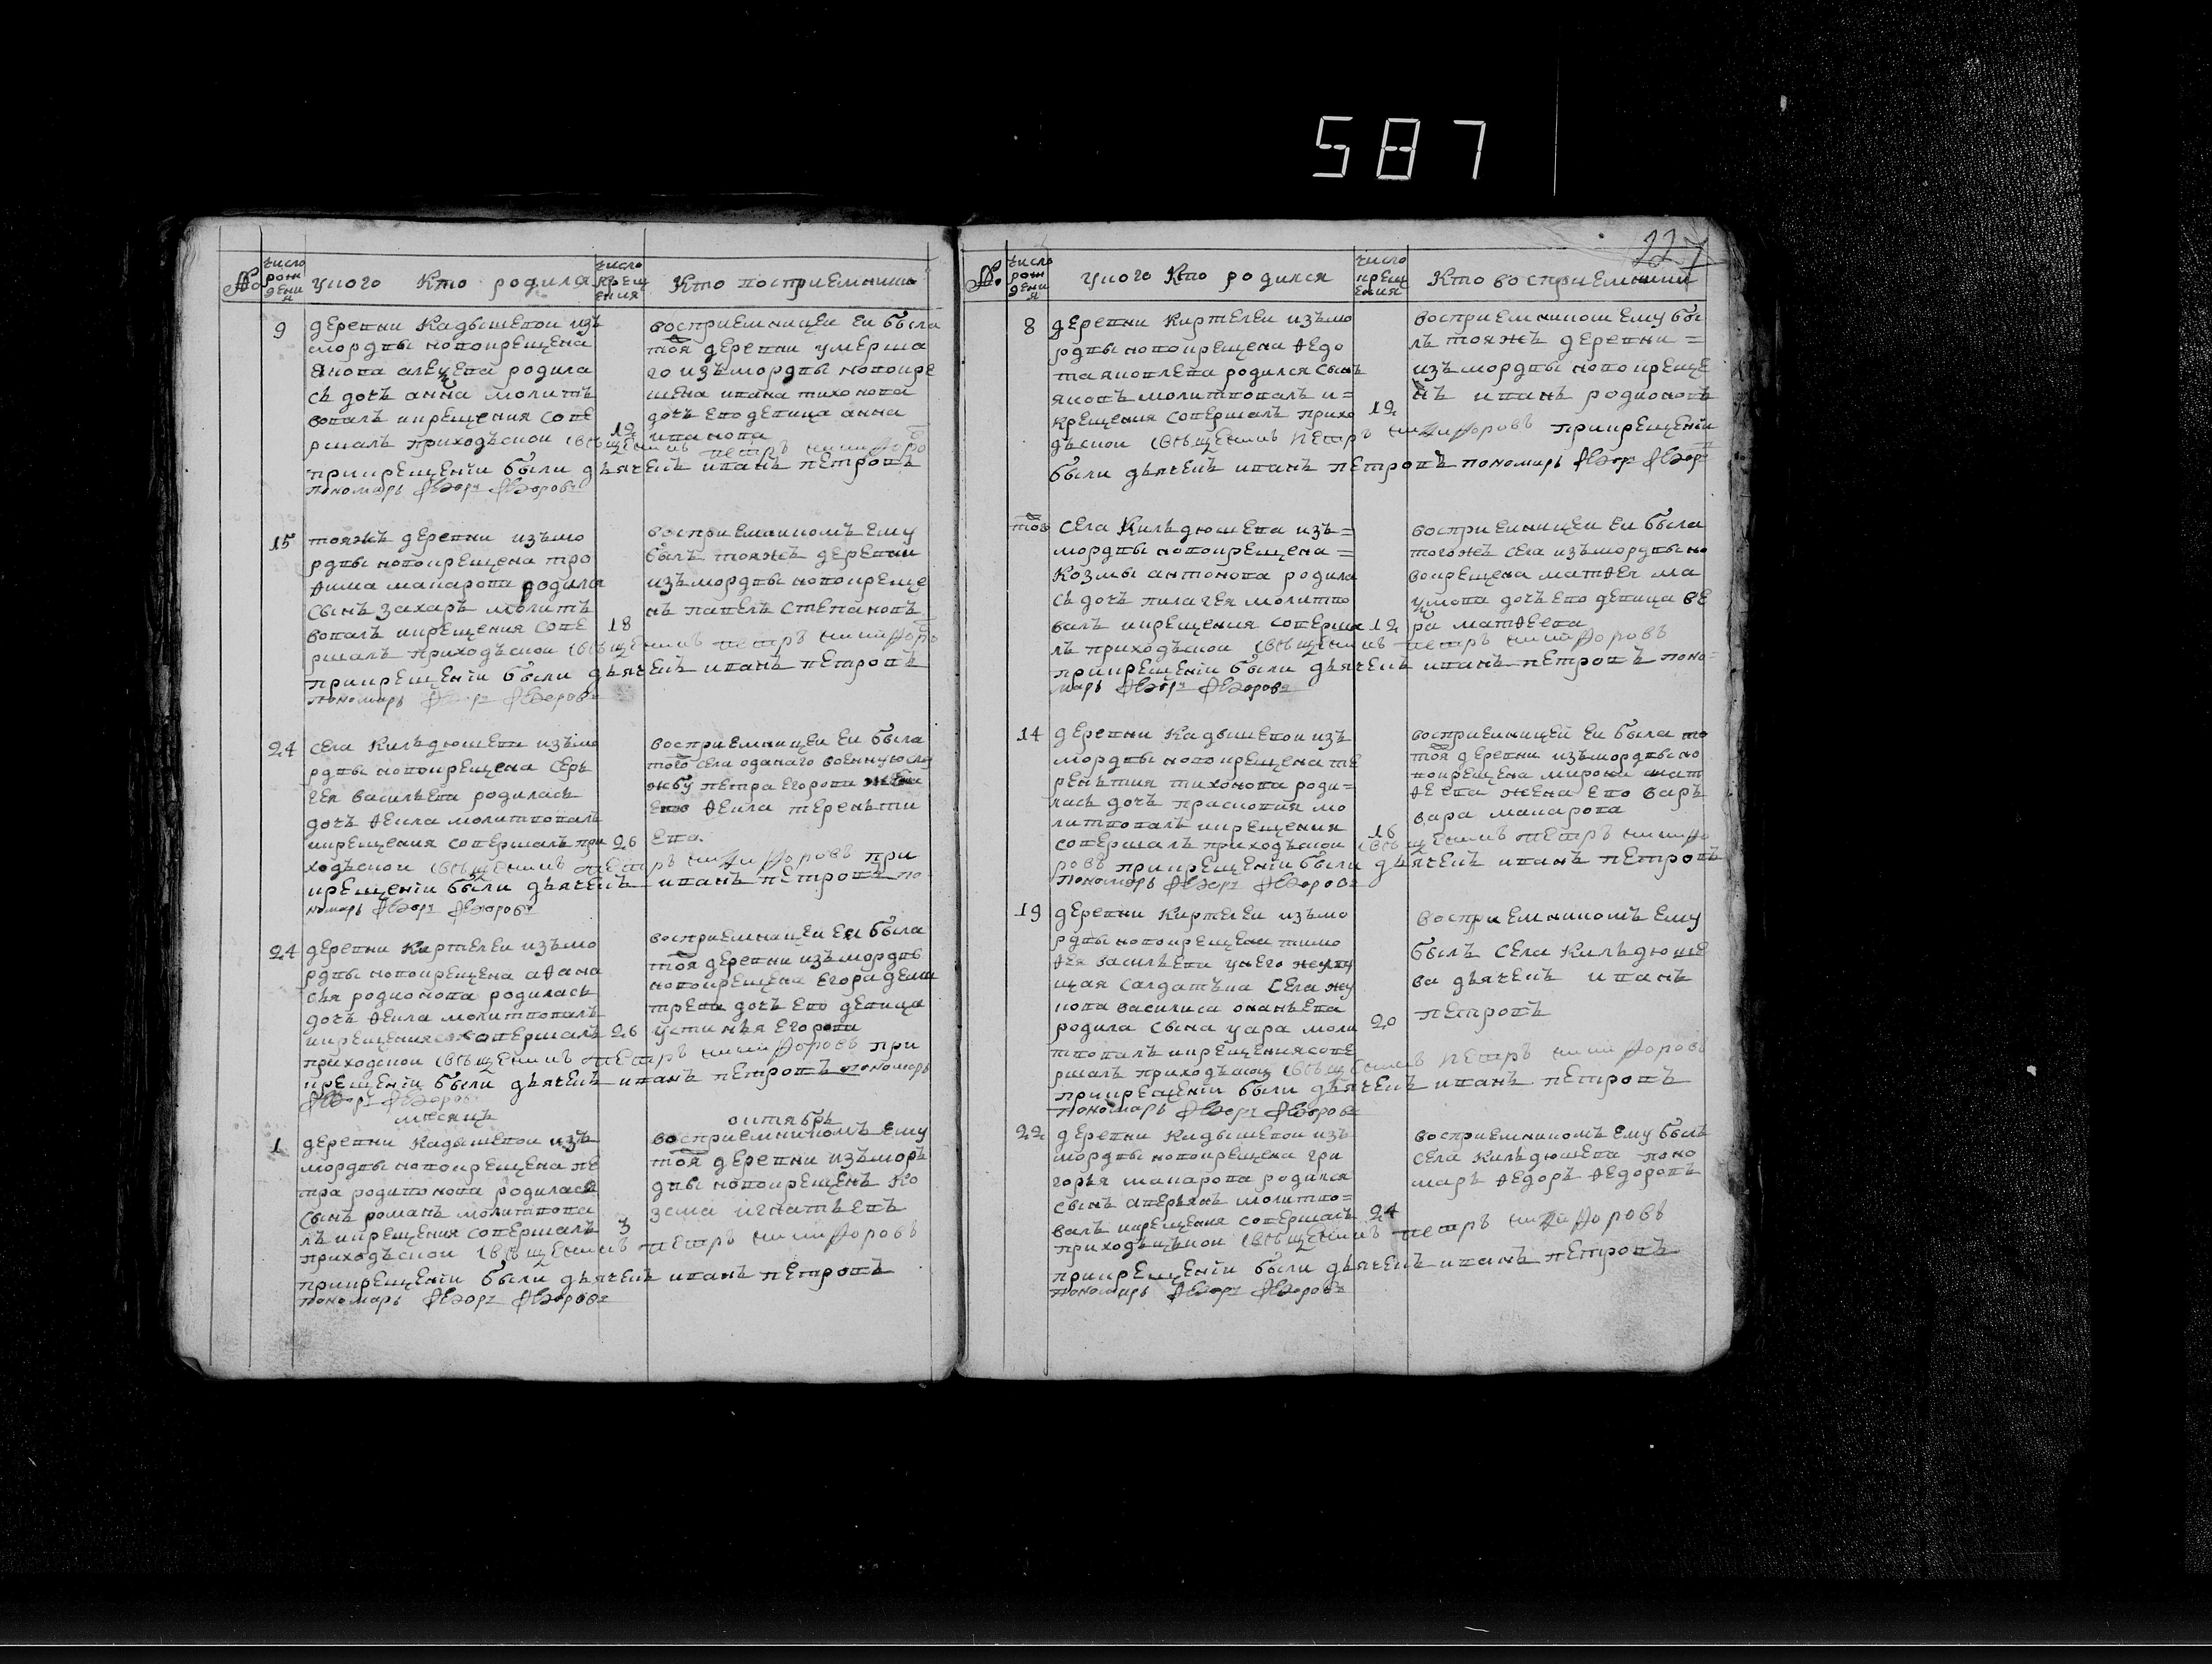 587
227
№ число рождения у кого кто родился число крещения кто восприемники
9 деревни Кадышевой изъ
мордвы новокрещена
якова алеѯева родила
сь дочь анна молитъ
вовалъ и крещения сове
ршалъ приходъской священикъ петръ никифоро
въ
при крещенiи были дьячекъ иванъ петровъ
пономарь Ѳедоръ Ѳедоровъ
12
восприемницеи еи была
тоя деревни умерша
го изъ мордвы новокре
щена ивана тихонова
дочь ево девица анна
иванова
15 тояжъ деревни изъ мо
рдвы новокрещена тро
ѳима макарова родился
сынъ захаръ молитъ
вовалъ и крещения сове
ршалъ приходъской священикъ петръ никифоро
въ
при крещенiи были дьячекъ иванъ петровъ
пономарь Ѳедоръ Ѳедоровъ
18
восприемникомъ ему
былъ тояжъ деревни
изъ мордвы новокреще
нъ павелъ степановъ
24 села Кильдюшева изъ мо
рдвы новокрещена серъ
гея васильева родилась
дочь ѳекла молитвовалъ
и крещения совершалъ при
ходъской священикъ петръ никифоровъ при
крещенiи были дьячекъ иванъ петровъ по
номарь Ѳедоръ Ѳедоровъ
26
восприемницеи еи была
того села оданаго военную слу
жбу петра егорова жена
ево ѳекла терентьи
ева.
24 деревни Киртелеи изъ мо
рдвы новокрещена аѳана
сья родионова родилась
дочь ѳекла молитвовалъ
и крещения совершалъ
приходской священикъ петръ никифоровъ при
крещенiи были дьячекъ иванъ петровъ пономарь
Ѳедоръ Ѳедоровъ
26
восприемницеи еи была
тоя деревни изъ мордвы
новокрещена егора дели
трева дочь ево девица
устинья егорова
месяцъ октябрь
1 деревни Кадышевои изъ
мордвы новокрещена пе
тра родионова родился
сынъ романъ молитвова
лъ и крещения совершалъ
приходъской священикъ петръ никифоровъ
при крещенiи были дьячекъ иванъ петровъ
пономарь Ѳедоръ Ѳедоровъ
3
восприемникомъ ему
тоя деревни изъ моръ
двы новокрещенъ ко
зема игнатьевъ
№ число рождения у кого кто родился число крещения кто восприемники
8 деревни Киртелеи изъ мо
рдвы новокрещена ѳедо
та яковлева родился сынъ
яковъ молитвовалъ и=
крещения совершалъ прихо
дъской священикъ петръ никифоровъ при крещенiи
были дьячекъ иванъ петровъ пономарь Ѳедоръ Ѳедоръ
въ
12
восприемникомъ ему бы
лъ тояжъ деревни =
изъ мордвы новокреще
нъ иванъ родионовъ
того села Кильдюшева изъ=
мордвы новокрещена =
Козмы антонова родила
сь дочь пилагея молитво
валъ и крещения соверша
лъ приходъской священикъ петръ никифоровъ
при крещенiи были дьячекъ иванъ петровъ поно=
марь Ѳедоръ Ѳедоровъ
12
восприемницеи еи была
тогожъ села изъ мордвы но
вокрещена матѳея ма
ѯимова дочь ево девица ве
ра матѳеева
14 деревни Кадышевои изъ
мордвы новокрещена те
рентия тихонова роди=
лась дочь прасковия мо
литвовалъ и крещения
совершалъ приходъской священикъ петръ никифо
ровъ при крещенiи были дьячекъ иванъ петровъ
пономарь Ѳедоръ Ѳедоровъ
16
восприемницеи еи была то
тоя деревни изъ мордвы но
вокрещена мирона мат
ѳеева жена ево варъ
вара макарова
19 деревни Киртелеи изъ мо
рдвы новокрещена тимо
ѳея васильева у него живу
щая салдатъка села жу
кова василиса онаньева
родила сына уара моли
твовалъ и крещения сове
ршалъ приходъской священикъ петръ никифоровъ
при крещенiи были дьячекъ иванъ петровъ
пономарь Ѳедоръ Ѳедоровъ
20
восприемникомъ ему
былъ села Кильдюше
ва дьячекъ иванъ
петровъ
22 деревни Кадышевои изъ
мордвы новокрещена гри
горья макарова родился
сынъ аверьянъ молитво=
валъ и крещения совершалъ
приходъской священикъ петръ никифоровъ
при крещенiи были дьячекъ иванъ петровъ
пономарь Ѳедоръ Ѳедоровъ
24
восприемникомъ ему былъ
села Кильдюшева поно
марь ѳедоръ ѳедоровъ